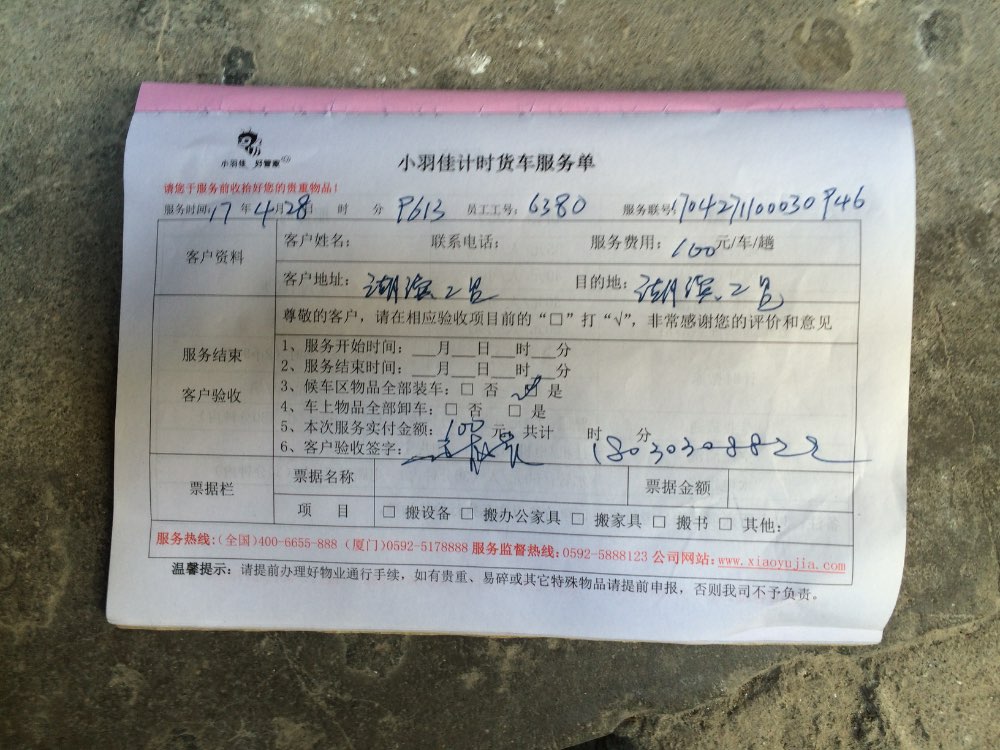 小羽佳 好管家
小羽佳计时货车服务单
请您于服务前收拾好您的贵重物品！
服务时间：17年4月28日 时 分 P613 员工工号：6380 服务联号：704271100030P46
客户资料
客户姓名： 联系电话： 服务费用：100元/车/趟
客户地址：湖滨二里 目的地：湖滨二里
服务结束
客户验收
尊敬的客户，请在相应验收项目前的“□”打“√”，非常感谢您的评价和意见
1、服务开始时间：___月___日___时___分
2、服务结束时间：___月___日___时___分
3、候车区物品全部装车：□ 否 ☑ 是
4、车上物品全部卸车：□ 否 □ 是
5、本次服务实付金额：100元，共计 时 分
6、客户验收签字： 18030308822
票据栏
票据名称 票据金额
项 目 □ 搬设备 □ 搬办公家具 □ 搬家具 □ 搬书 □ 其他：
服务热线：(全国)400-6655-888 (厦门)0592-5178888 服务监督热线：0592-5888123 公司网站：www.xiaoyujia.com
温馨提示：请提前办理好物业通行手续，如有贵重、易碎或其它特殊物品请提前申报，否则我司不予负责。